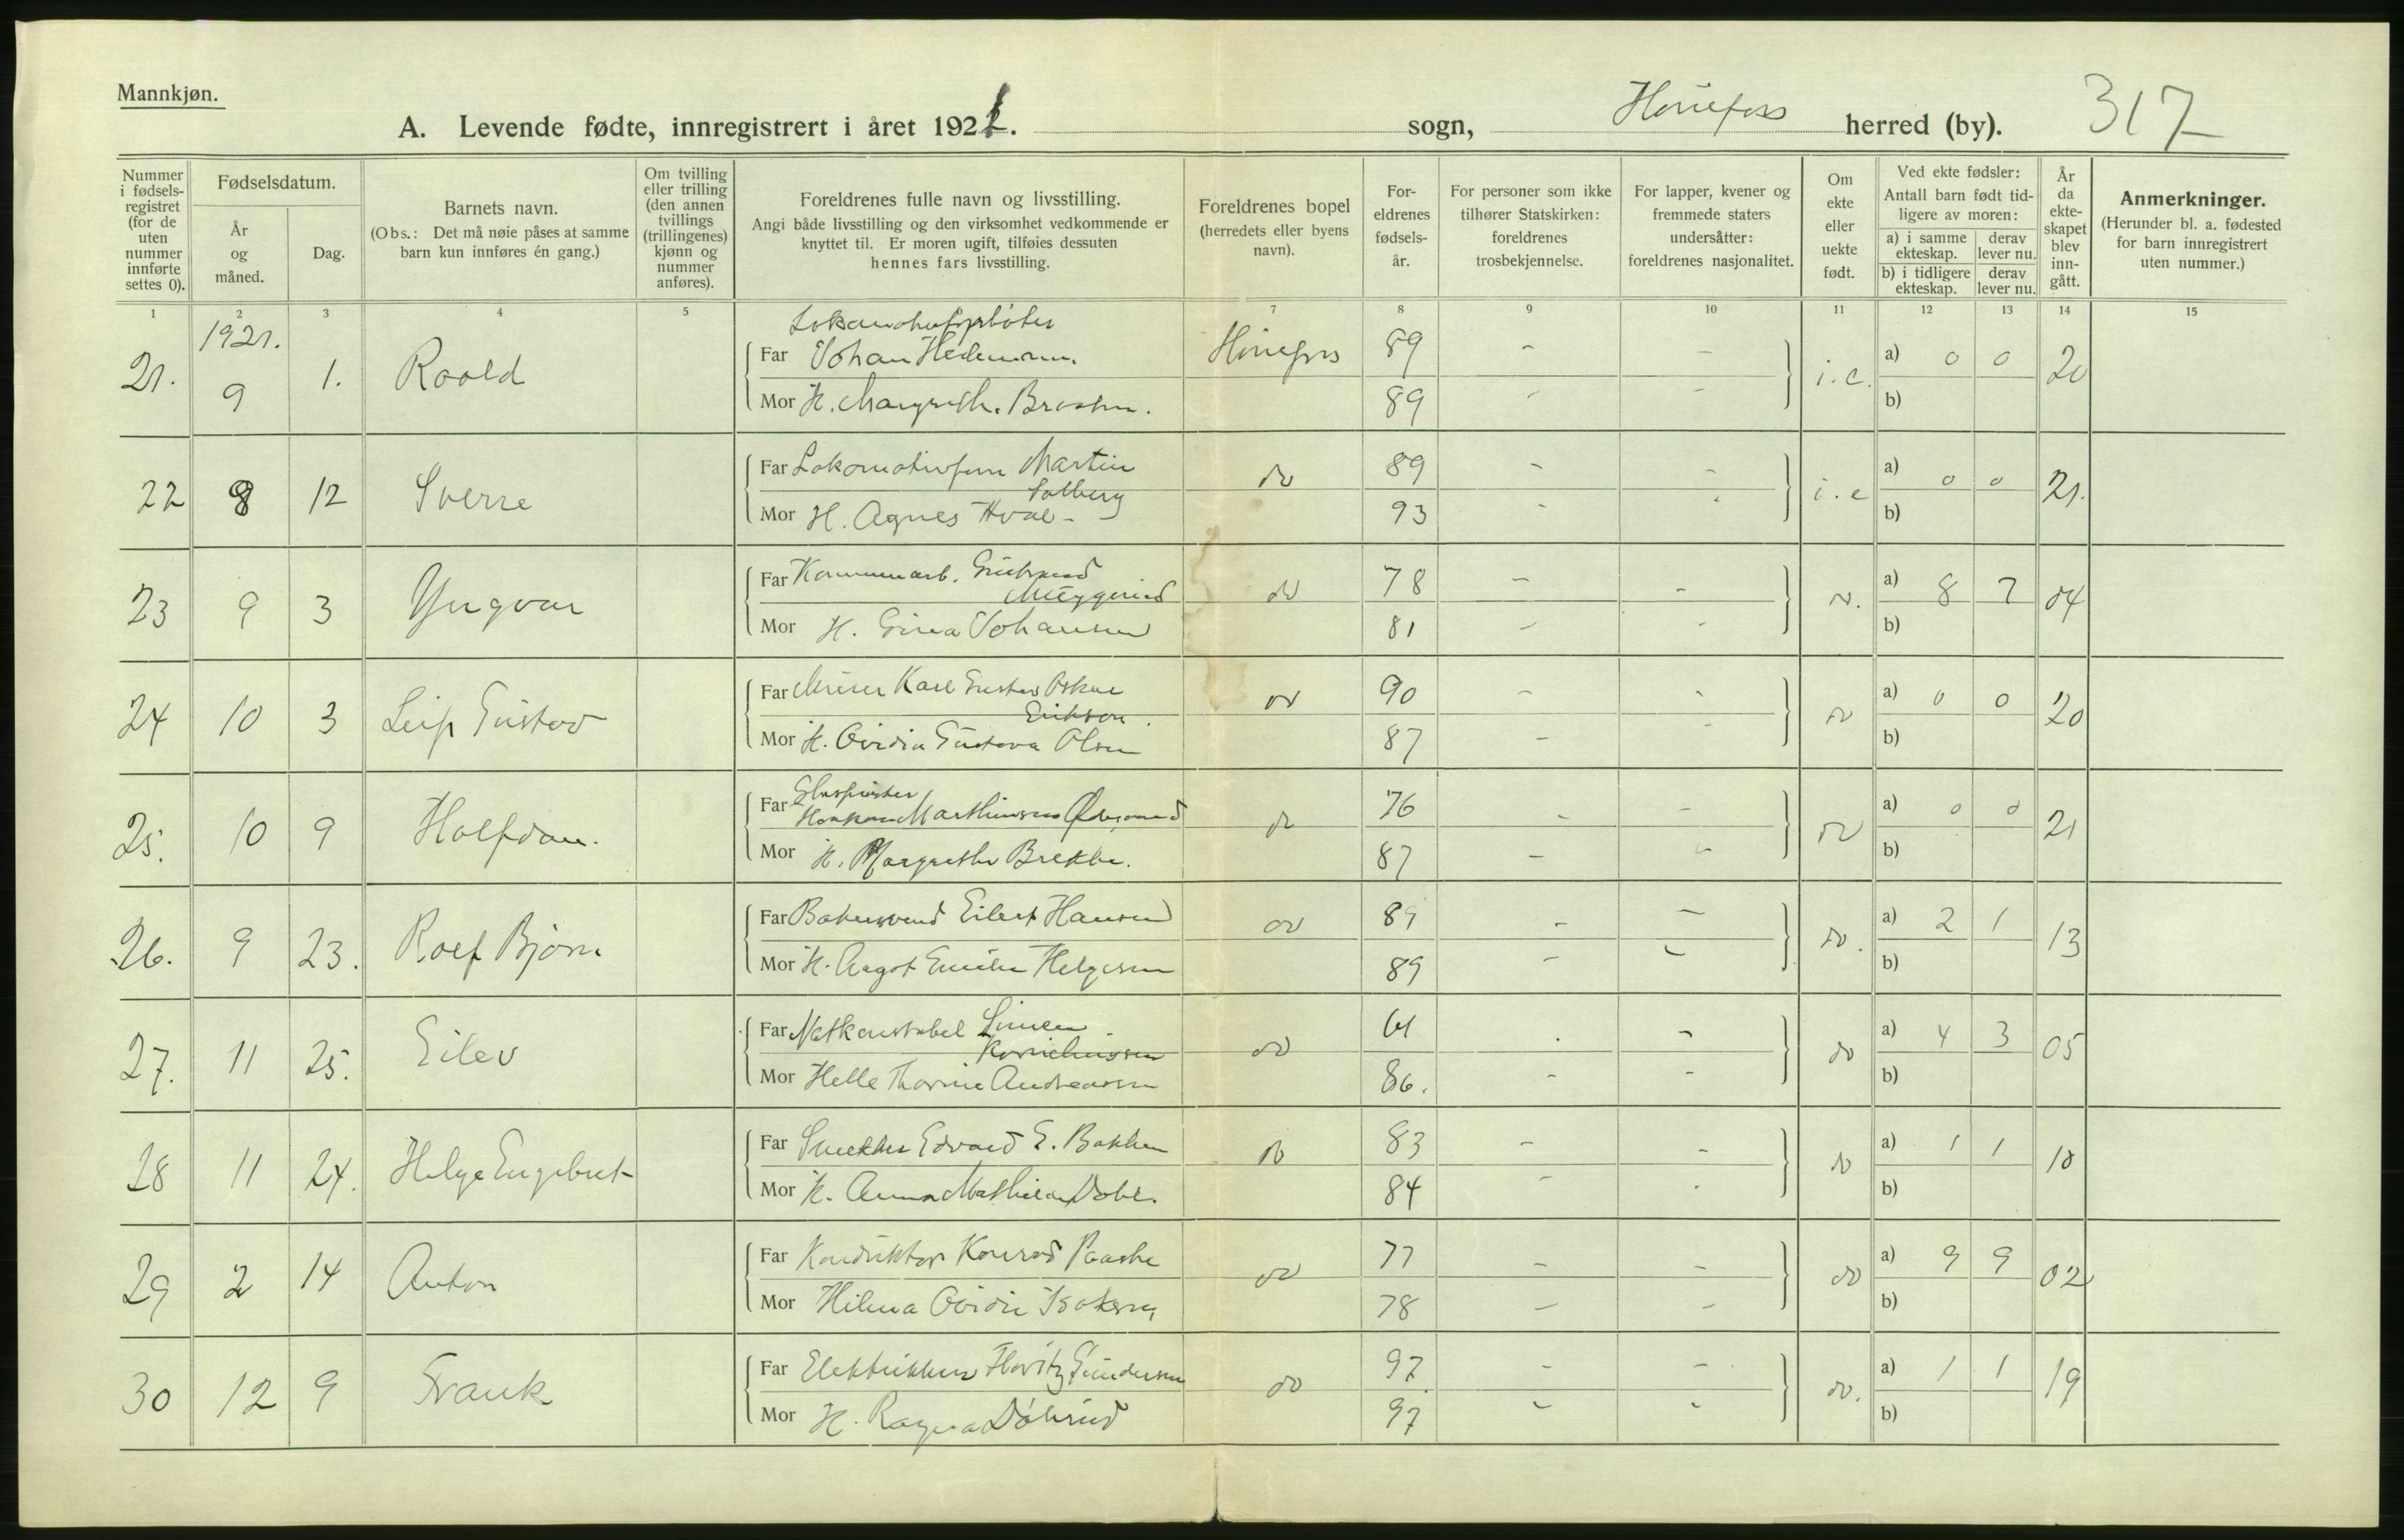 Mannkjøn.
A. Levende fødte, innregistrert i året 1921. sogn, Hønefoss herred (by). 317
Nummer i fødsels-registret (for de uten nummer innførte settes 0).
Fødselsdatum.
År og måned.
Dag.
Barnets navn.
(Obs.: Det må nøie påses at samme barn kun innføres én gang.)
Om tvilling eller trilling (den annen tvillings (trillingenes) kjønn og nummer anføres).
Foreldrenes fulle navn og livsstilling.
Angi både livsstilling og den virksomhet vedkommende er knyttet til. Er moren ugift, tilføies dessuten hennes fars livsstilling.
Foreldrenes bopel (herredets eller byens navn).
For-eldrenes fødsels-år.
For personer som ikke tilhører Statskirken: foreldrenes trosbekjennelse.
For lapper, kvener og fremmede staters undersåtter: foreldrenes nasjonalitet.
Om ekte eller uekte født.
Ved ekte fødsler: Antall barn født tid-ligere av moren:
a) i samme ekteskap. derav lever nu.
b) i tidligere ekteskap. derav lever nu.
År da ekte-skapet blev inn-gått.
Anmerkninger.
(Herunder bl. a. fødested for barn innregistrert uten nummer.)
1 2 3 4 5 7 8 9 10 11 12 13 14 15
1921.
21. 9 1. Roald Far Johan Hønefoss 89 - - i.e. a) 0 0 20
Mor H. Margreth. 89 - - b)
22 8 12 Sverre Far Martin Solberg do 89 - - i.e a) 0 0 21.
Mor H. Agnes Hval 93 - - b)
23 9 3 Yngvar Far Kommunearb. do 78 - - do. a) 8 7 04
Mor H. Gina Johansen 81 - - b)
24 10 3 Leif Gustav Far Murer Karl Gustav Oskar Erikson. do 90 - - do a) 0 0 20
Mor H. Ovidia Gustava Olsen 87 - - b)
25. 10 9 Halfdan. Far Marthinsen do 76 - - do a) 0 0 21
Mor H. Margrethe Brekke. 87 - - b)
26. 9 23. Rolf Bjørn Far Bakersvend Eilert Hansen do 89 - - do. a) 2 1 13
Mor H. Aagot Emilie Helgesen 89 - - b)
27. 11 25. Eilev Far Korneliussen do 61 - - do a) 4 3 05
Mor Helle Thorine Andreassen 86. - - b)
28 11 24. Helge Engebret Far Snekker Edvard E. Bakken do 83 - - do a) 1 1 18
Mor H. Anna Mathilde 84 - - b)
29 2 14 Anton Far Konduktør Konrad Paaske do 77 - - do a) 9 9 02
Mor Hilma Ovidie Isaksen 78 - - b)
30 12 9 Frank Far Elektriker Gundersen do 97 - - do. a) 1 1 19
Mor H. Ragna 97 - - b)